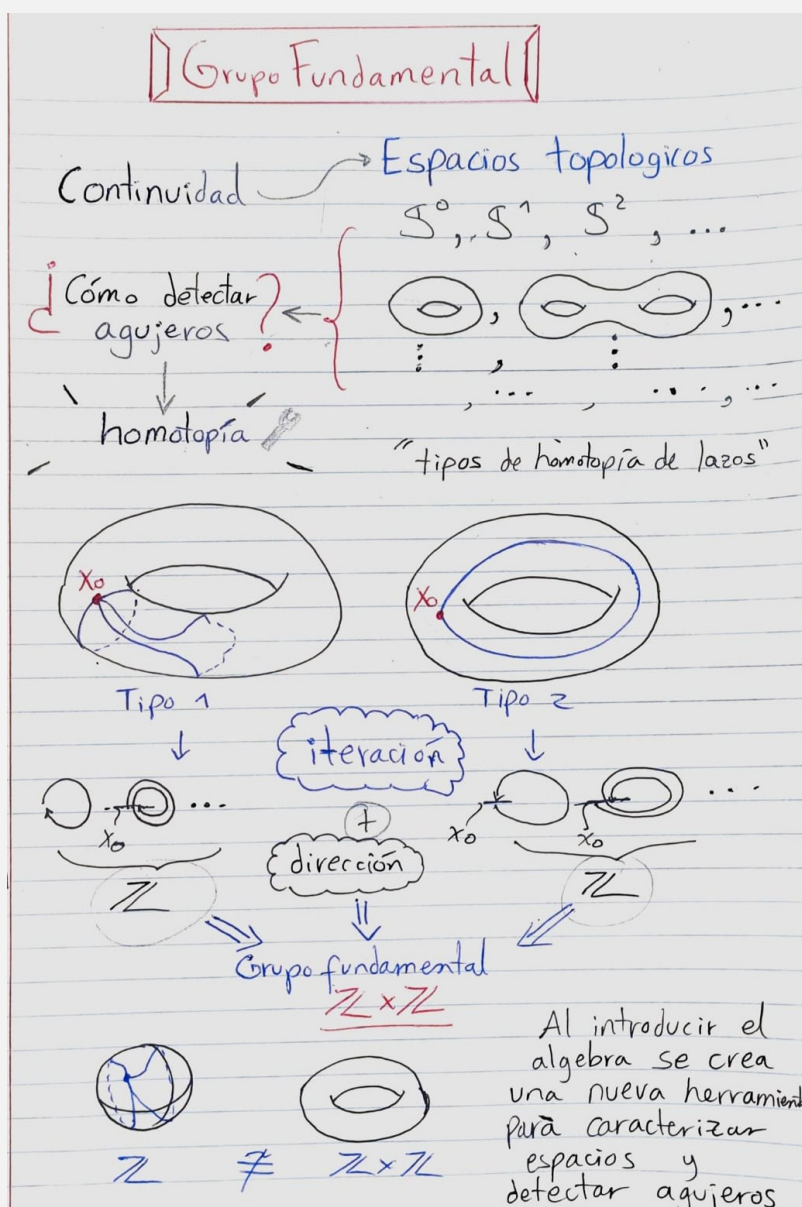 Grupo Fundamental
Continuidad
Espacios topologicos
S⁰, S¹, S², ...
¿Cómo detectar
agujeros?
, , ...
, ... , ... , ...
homotopía
"tipos de homotopía de lazos"
X₀
X₀
Tipo 1
Tipo 2
iteración
...
...
X₀
X₀
X₀
+
dirección
ℤ
ℤ
Grupo fundamental
ℤ×ℤ
Al introducir el
algebra se crea
una nueva herramient
para caracterizar
espacios y
detectar agujeros
ℤ ≠ ℤ×ℤ